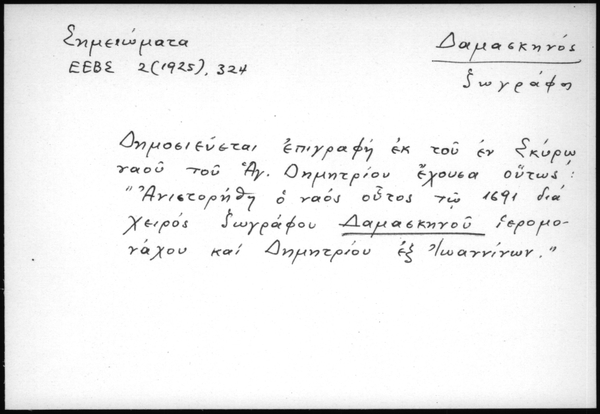 Σημειώματα
ΕΕΒΣ 2(1925), 324
Δαμασκηνός
ζωγράφη
Δημοσιεύεται ἐπιγραφή ἐκ τοῦ ἐν Σκύρῳ
ναοῦ τοῦ Ἁγ. Δημητρίου ἔχουσα οὕτως:
"Ἀνιστορήθη ὁ ναός οὗτος τῷ 1691 διά
χειρός ζωγράφου Δαμασκηνοῦ ἱερομο-
νάχου καί Δημητρίου ἐξ Ἰωαννίνων."